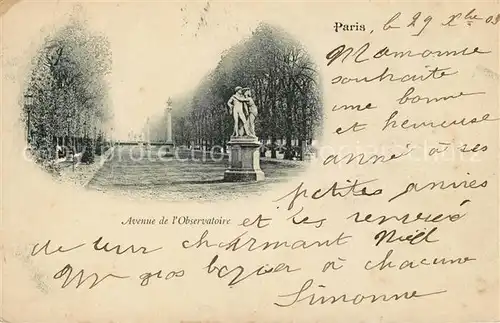 Paris, le 29 Xbre 03
Mamonne
souhaite
une bonne
et heureuse
anné à ses
petites amies
Avenue de l'Observatoire
et les
de leur charmant Noël
Un gros baiser à chacune
Simonne